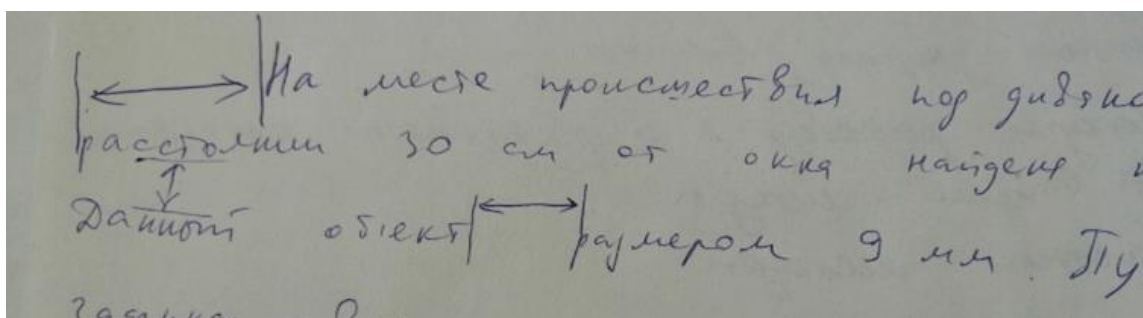 На месте происшествия под
расстоянии 30 см от окна найдена
Данный объект размером 9 мм. Пу